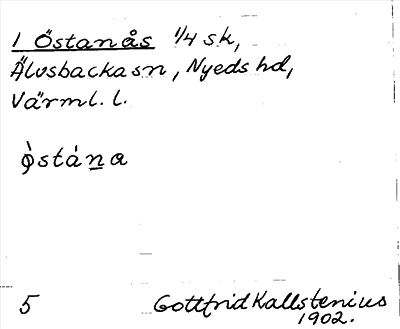 1 Östanås 1/4 sk,
Älvsbacka sn, Nyeds hd,
Värml. l.
ǫ̀stána
5
Gottfrid Kallstenius
1902.